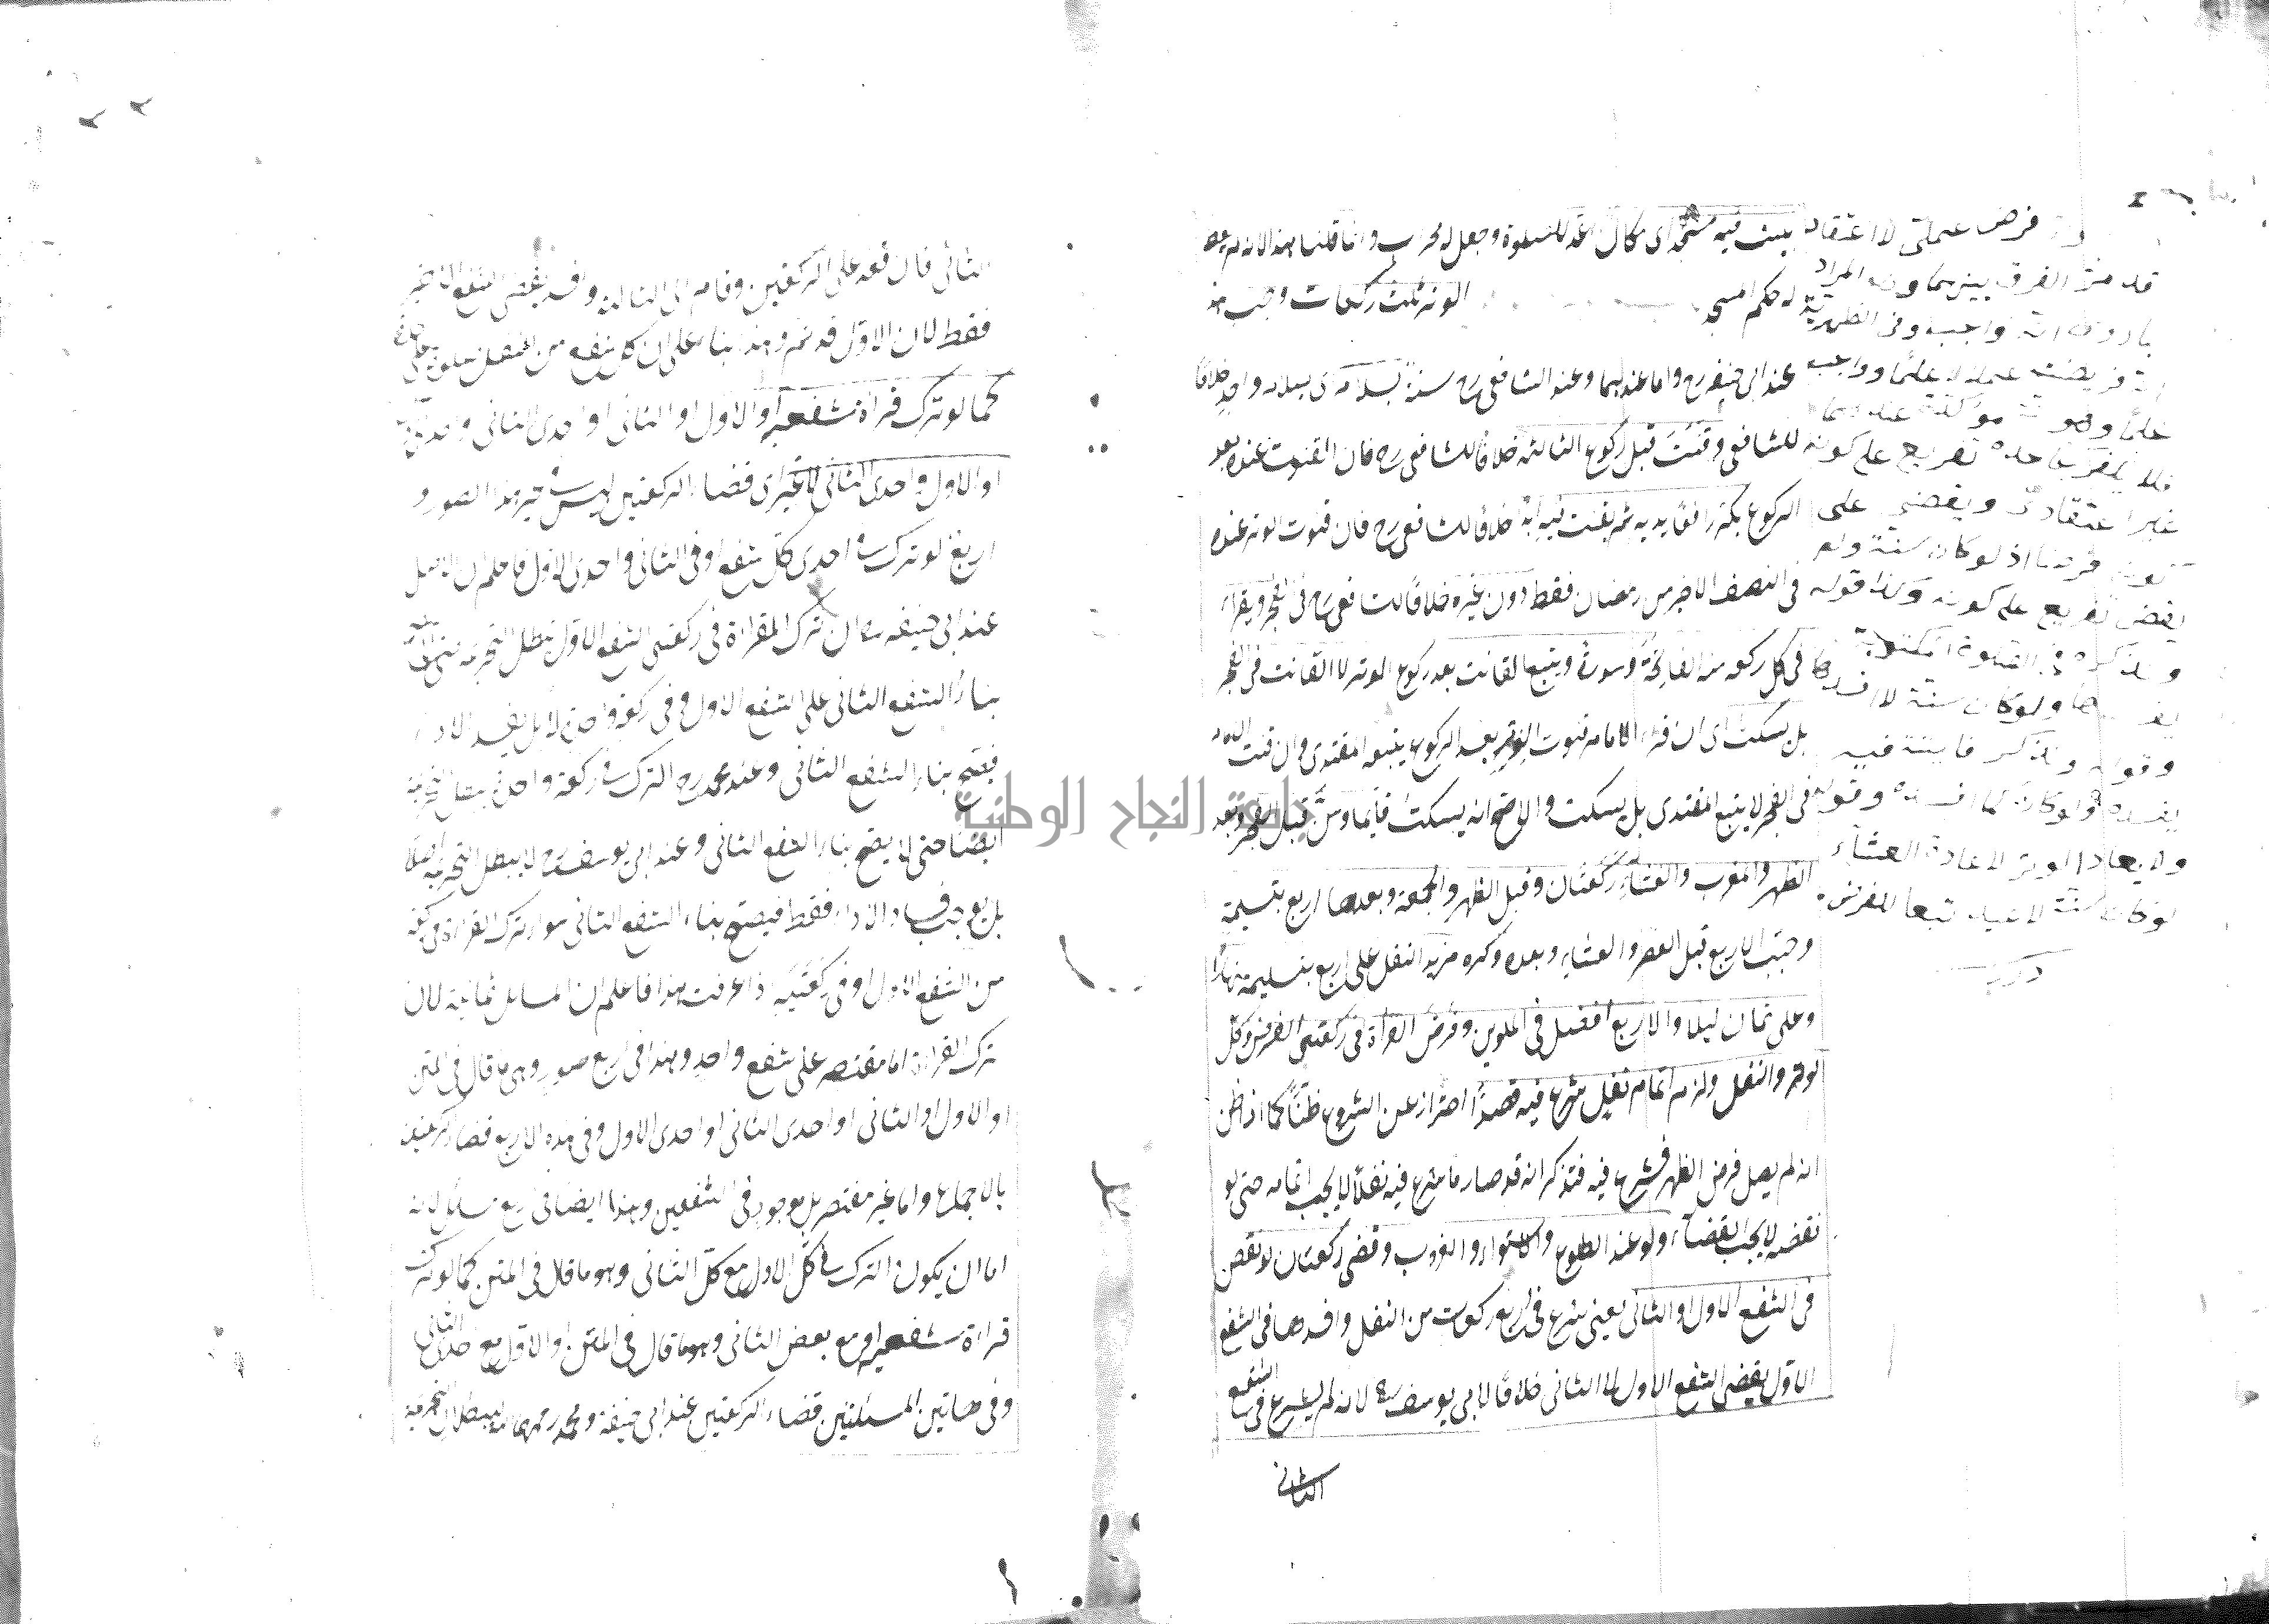 بيت فيه مسجد اى مكان اعد للصلوة وجعل له محراب وانما قلنا هذا لانه لم يعط
له حكم المسجد الوتر ثلث ركعات وجب هذا
عند ابى حنيفة رح واما عندهما وعند الشافعى رح سنة بسلام اى بسلام واحد خلافًا
للشافعى وقنت قبل ركوع الثالثة خلافًا للشافعى رح فان القنوت عنده بعد
الركوع يكبر رافعًا يديه ثم يقنت فيه ابدًا خلافًا للشافعى رح فان قنوت الوتر عنده
فى النصف الاخير من رمضان فقط دون غيره خلافًا للشافعى رح فى الفجر ويقراء
فى كل ركعة منه الفاتحة وسورة ويتبع القانت بعد ركوع الوتر لا القانت فى الفجر
بل يسكت اى ان قراء الامام قنوت الوتر بعد الركوع يتبعه المقتدى وان قنت الامام
فى الفجر لا يتبع المقتدى بل يسكت والاصح انه يسكت قايما وسن قبل الفجر وبعد
الظهر والمغرب والعشاء ركعتان وقبل الظهر والجمعة وبعدها اربع بتسليمة
وحبب الاربع قبل العصر والعشاء وبعده وكره مزيد النفل على اربع بتسليمة نهارًا
وعلى ثمان ليلا والاربع افضل فى الملوين وفرض القراة فى ركعتى الفرض وكل
الوتر والنفل ولزم اتمام نفل شرع فيه قصدًا احتراز عن الشروع ظنًّا كما اذا ظن
انه لم يصل فرض الظهر فشرع فيه فتذكر انه قد صار ما شرع فيه نفلًا لا يجب اتمامه حتى لو
نقضه لا يجب القضاء ولو عند الطلوع والاستواء والغروب وقضى ركعتان لو نقض
فى الشفع الاول او الثانى يعنى شرع فى اربع ركعات من النفل وافسدها فى الشفع
الاول يقضى الشفع الاول لا الثانى خلافًا لابى يوسف رح لانه لم يشرع فى الشفع
الثانى
فرض عملى لا اعتقاد
الفرق بينهما وجه المراد
واجب وفى الظهرية
فريضة عملا لا علما وواجب
علما وهو سنة مؤكدة عندهما
فلا يكفر جاحده تفريع على كونه
غير اعتقادى ويقضى على
كونه فرضا اذ لو كان سنة ولم
يقض تفريع على كونه وكذا قوله
وتذكره فى الصلوة المكتوبة
يفسدها ولو كان سنة لا افسدها
وقوله وتذكر فايتة فيه
يفسده ولو كان لما افسده وقوله
ولا يعاد الوتر لاعادة العشاء
لو كان سنة لاعيد تبعا للفرض
درر
الثانى فان قعد على الركعتين وقام الى الثالثة وافسد يقضى الشفع الاخير
فقط لان الاول قد تم وهذا بناء على ان كل شفع من النفل صلوة على حدة
كما لو ترك قراة شفعيه او الاول او الثانى او احدى الثانى واحدى
او الاول واحدى الثانى لا غير اى قضاء الركعتين ليس فى غير هذا الصور و
اربع لو ترك فى احدى كل شفع او فى الثانى واحدى الاول فاعلم ان الاصل
عند ابى حنيفة رح ان ترك القراة فى ركعتى الشفع الاول يبطل التحريمة
بناء الشفع الثانى على الشفع الاول وفى ركعة واحدة لا بل يفسد الاداء
فيصح بناء الشفع الثانى وعند محمد رح الترك فى ركعة واحدة يبطل التحريمة
ايضًا حتى لا يصح بناء الشفع الثانى وعند ابى يوسف رح لا يبطل التحريمة اصلا
بل يوجب فساد الاداء فقط فيصح بناء الشفع الثانى سواء ترك القراة فى ركعة
من الشفع الاول او فى ركعتيه اذا عرفت هذا فاعلم ان المسائل ثمانية لان
ترك القراة اما مقتصر على شفع واحد وهذا فى اربع صور وهى ما قال فى المتن
او الاول او الثانى او احدى الثانى او احدى الاول وفى هذه الاربع قضاء الركعتين
بالاجماع واما غير مقتصر بل موجود فى الشفعين وهذا ايضًا فى اربع مسائل لانه
اما ان يكون الترك فى كل الاول مع كل الثانى وهو ما قال فى المتن كما لو ترك
قراءة شفعيه او مع بعض الثانى وهو ما قال فى المتن او الاول مع احدى الثانى
وفى هاتين المسئلتين قضاء الركعتين عند ابى حنيفة ومحمد رحمهما الله لبطلان التحريمة
جامعة النجاح الوطنية